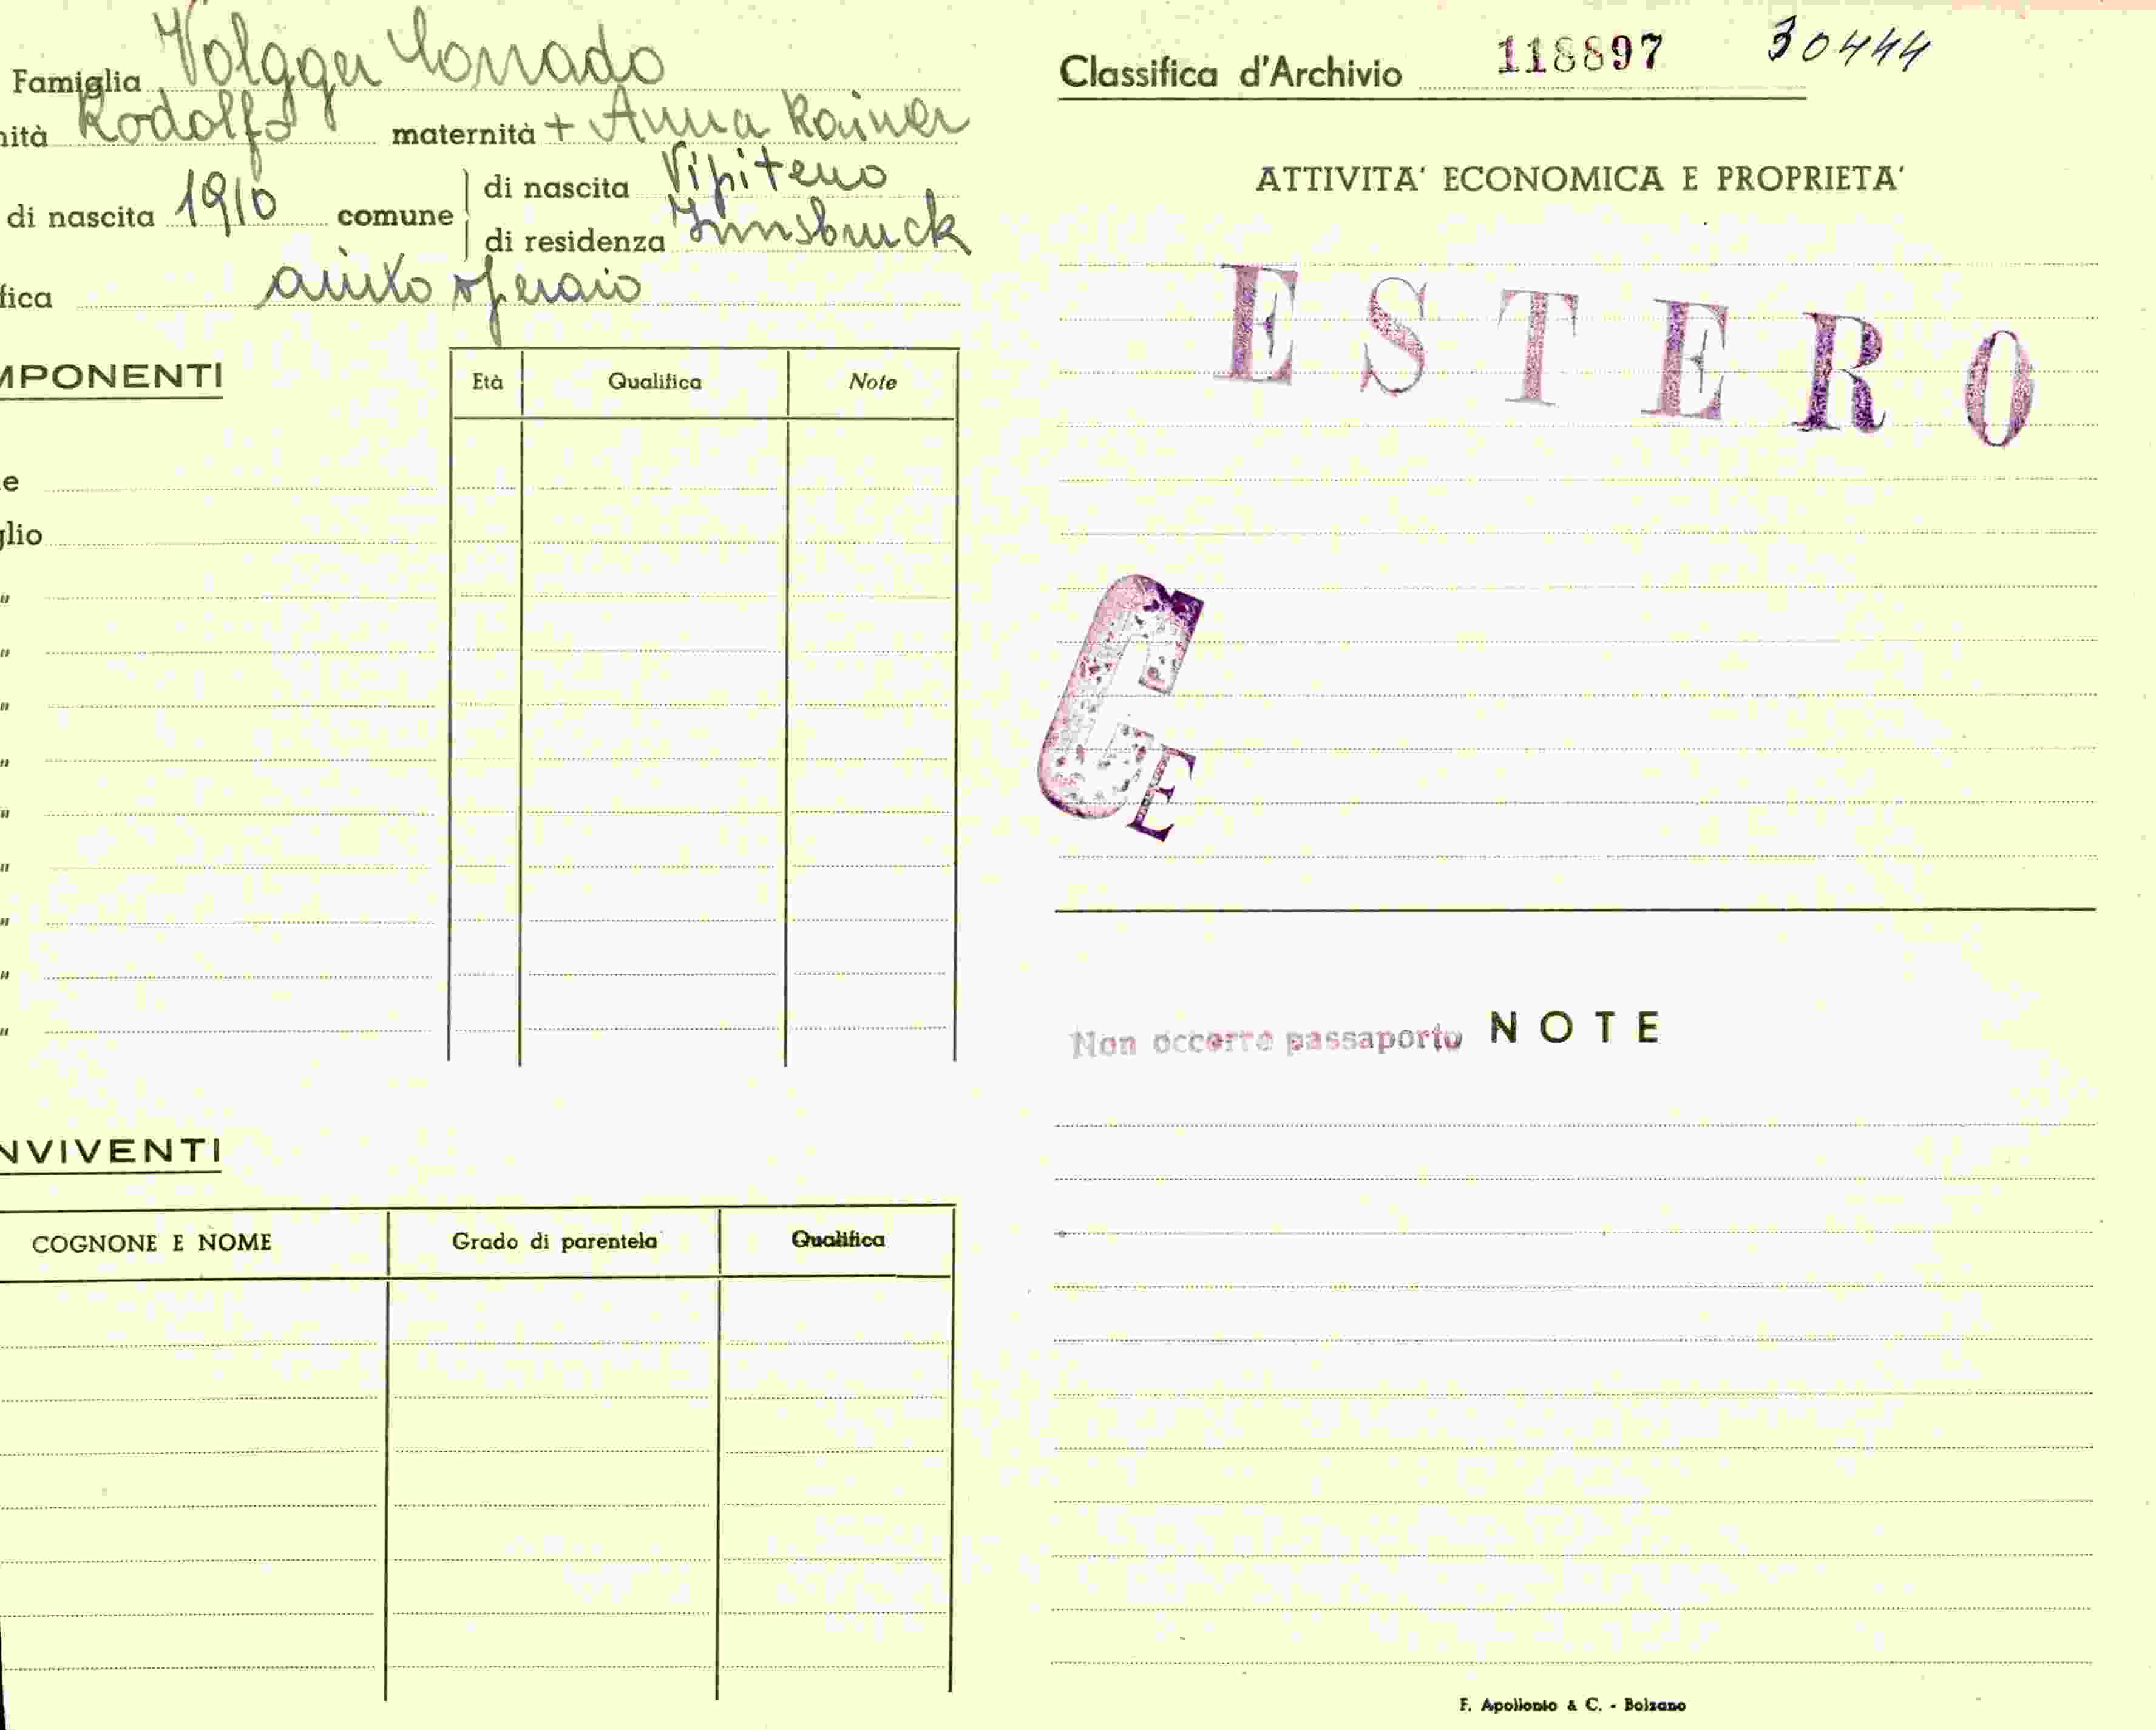 Famiglia Volgger Corrado
nità Rodolfo maternità + Anna Rainer
di nascita 1910 comune di nascita Vipiteno
di residenza Innsbruck
fica operaio
MPONENTI
Età Qualifica Note
e
glio
"
"
"
"
"
"
"
"
"
NVIVENTI
COGNONE E NOME Grado di parentela Qualifica
Classifica d'Archivio 118897 30444
ATTIVITA' ECONOMICA E PROPRIETA'
ESTERO
C
E
Non occorre passaporto NOTE
F. Apollonio & C. - Bolzano